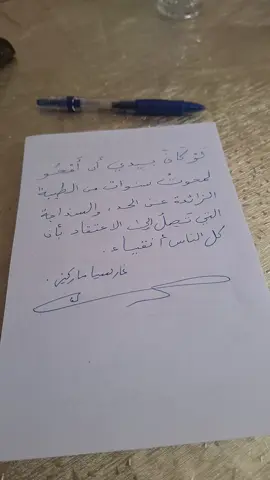 لو كان بيدي أن أمحو
لمحوت سنوات من الطيبة
الزائدة عن الحد، والسذاجة
التي تصل إلى الاعتقاد بأن
كل الناس أنقياء.
غارسيا ماركيز.